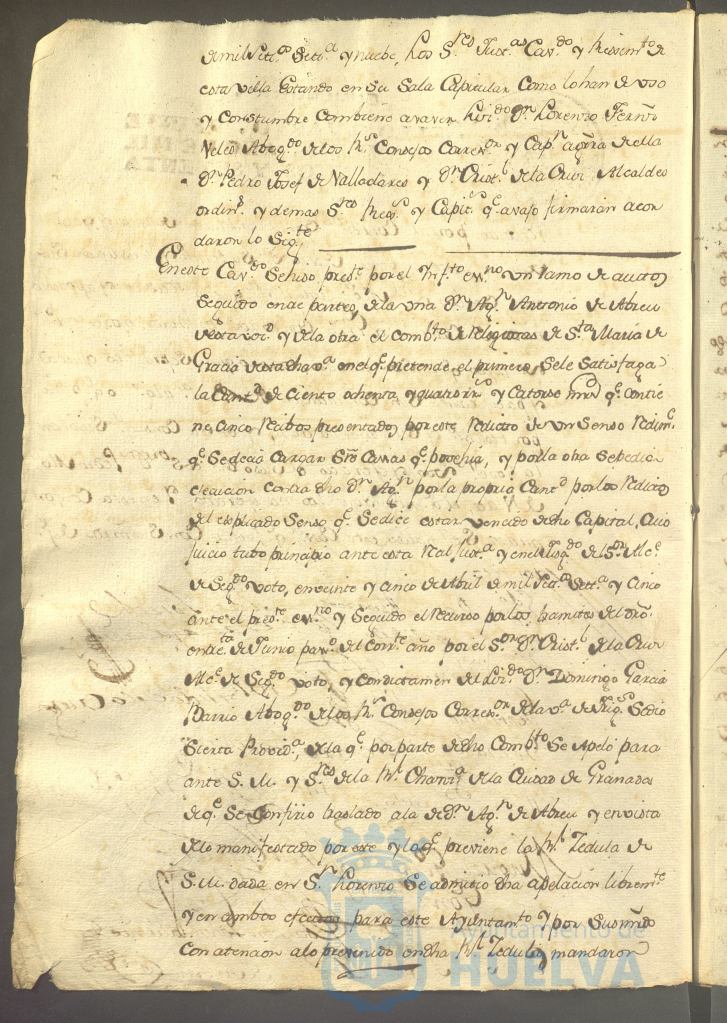 de mil Set.s Set.ta y nuebe, Los S.res Just.as Cav.do y Regim.to de
esta villa Estando en su Sala Capitular como lo han de uso
y Constumbre combiene a saver Liz.do D.n Lorenzo Ferñz
Velez Abog.do de los R.s Consejos Corren.or y Cap.n a grã de ella
D.n Pedro Josef de Valladares y D.n Crist.l de la Cruz Alcaldes
ordin.s y demas S.res Rex.s y Capit.s q.e avajo firmaràn acor
daron lo Sig.te
En este Cav.do Se hizo pres.te por el Inf.to ess.no un ramo de autos
Seguido entre partes, de la una D.n Ag.n Antonio de Abreu
de esta vez.d y de la otra el Comb.to de Religiosas de S.ta Maria de
Gracia de esta dha v.a en el q.e pretende el primero, Se le Satisfaga
la Cant.d de Ciento ochenta y quatro rr.s y Catorse mrs q.e contie
ne, Cinco Recibos presentados por este Redicto de un Senso Redim.e
q.e se decia Cargar Sre Casas q.e posehia, y por la otra Se pedia
execucion contra dho D.n Ag.n por la propria Cant.d por los Redictos
del explicado Senso q.e Se dice estar vencido dho Capital, Cuio
juicio tubo principio ante esta Real Just.a y en el Juzg.do del S.or Alc.e
de Seg.do voto, en veinte y cinco de Abril de mil Set.s Set.ta y Cinco
ante el pres.te ess.no y Seguido el recurso por los tramites del dro
en tre.ta de Junio pas.do del Corr.te año por el S.or D.n Crist.l de la Cruz
Alc.e de Seg.do voto, y con dictamen del Liz.do D.n Domingo Garcia
Barrio Abog.do de los R.s Consejos Corres.or de la v.a de Trig.s Se dio
Sierta Provid.a, de la q.e por parte de dho Comb.to Se Apeló para
ante S. M. y S.res de la R.l Chanz.a de la Ciudad de Granada
de q.e Se Confirio traslado a la de D.n Ag.n de Abreu y en vista
de lo manifestado por este y lo q.e previene la R.l Zedula de
S. M. dada en S.n Lorenzo Se admitio dha apelacion librem.te
y en ambos efectos para este Ayuntam.to y por Sus mds
Con atencion a lo prevenido en dha R.l Zedula, mandaron
Ayuntamiento de
HUELVA